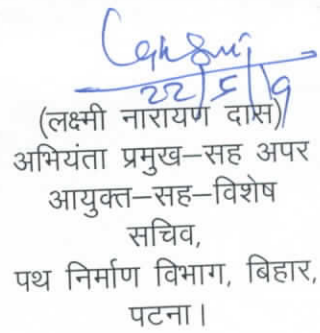 22/5/19
(लक्ष्मी नारायण दास)
अभियंता प्रमुख–सह अपर
आयुक्त–सह–विशेष
सचिव,
पथ निर्माण विभाग, बिहार,
पटना।